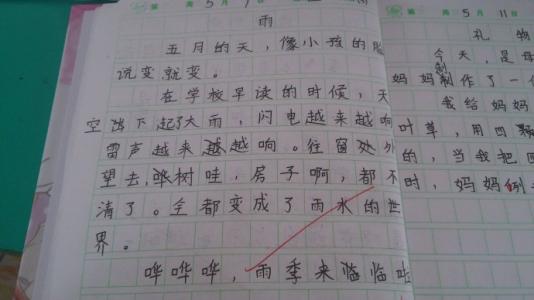 第 周 5 月
雨
五月的天，像小孩的脸
说变就变。
在学校早读的时候，天
空 下起了大雨，闪电越来越响
雷声越来越越响。往窗处外
望去，树哇，房子啊，都不
清了。全都变成了雨水的世
界。
哗哗哗，雨季来临临
第 周 5 月 11 日
礼 物
今天，是母
妈妈制作了一
我给妈妈
叶草，用四
的，当我把四
时，妈妈